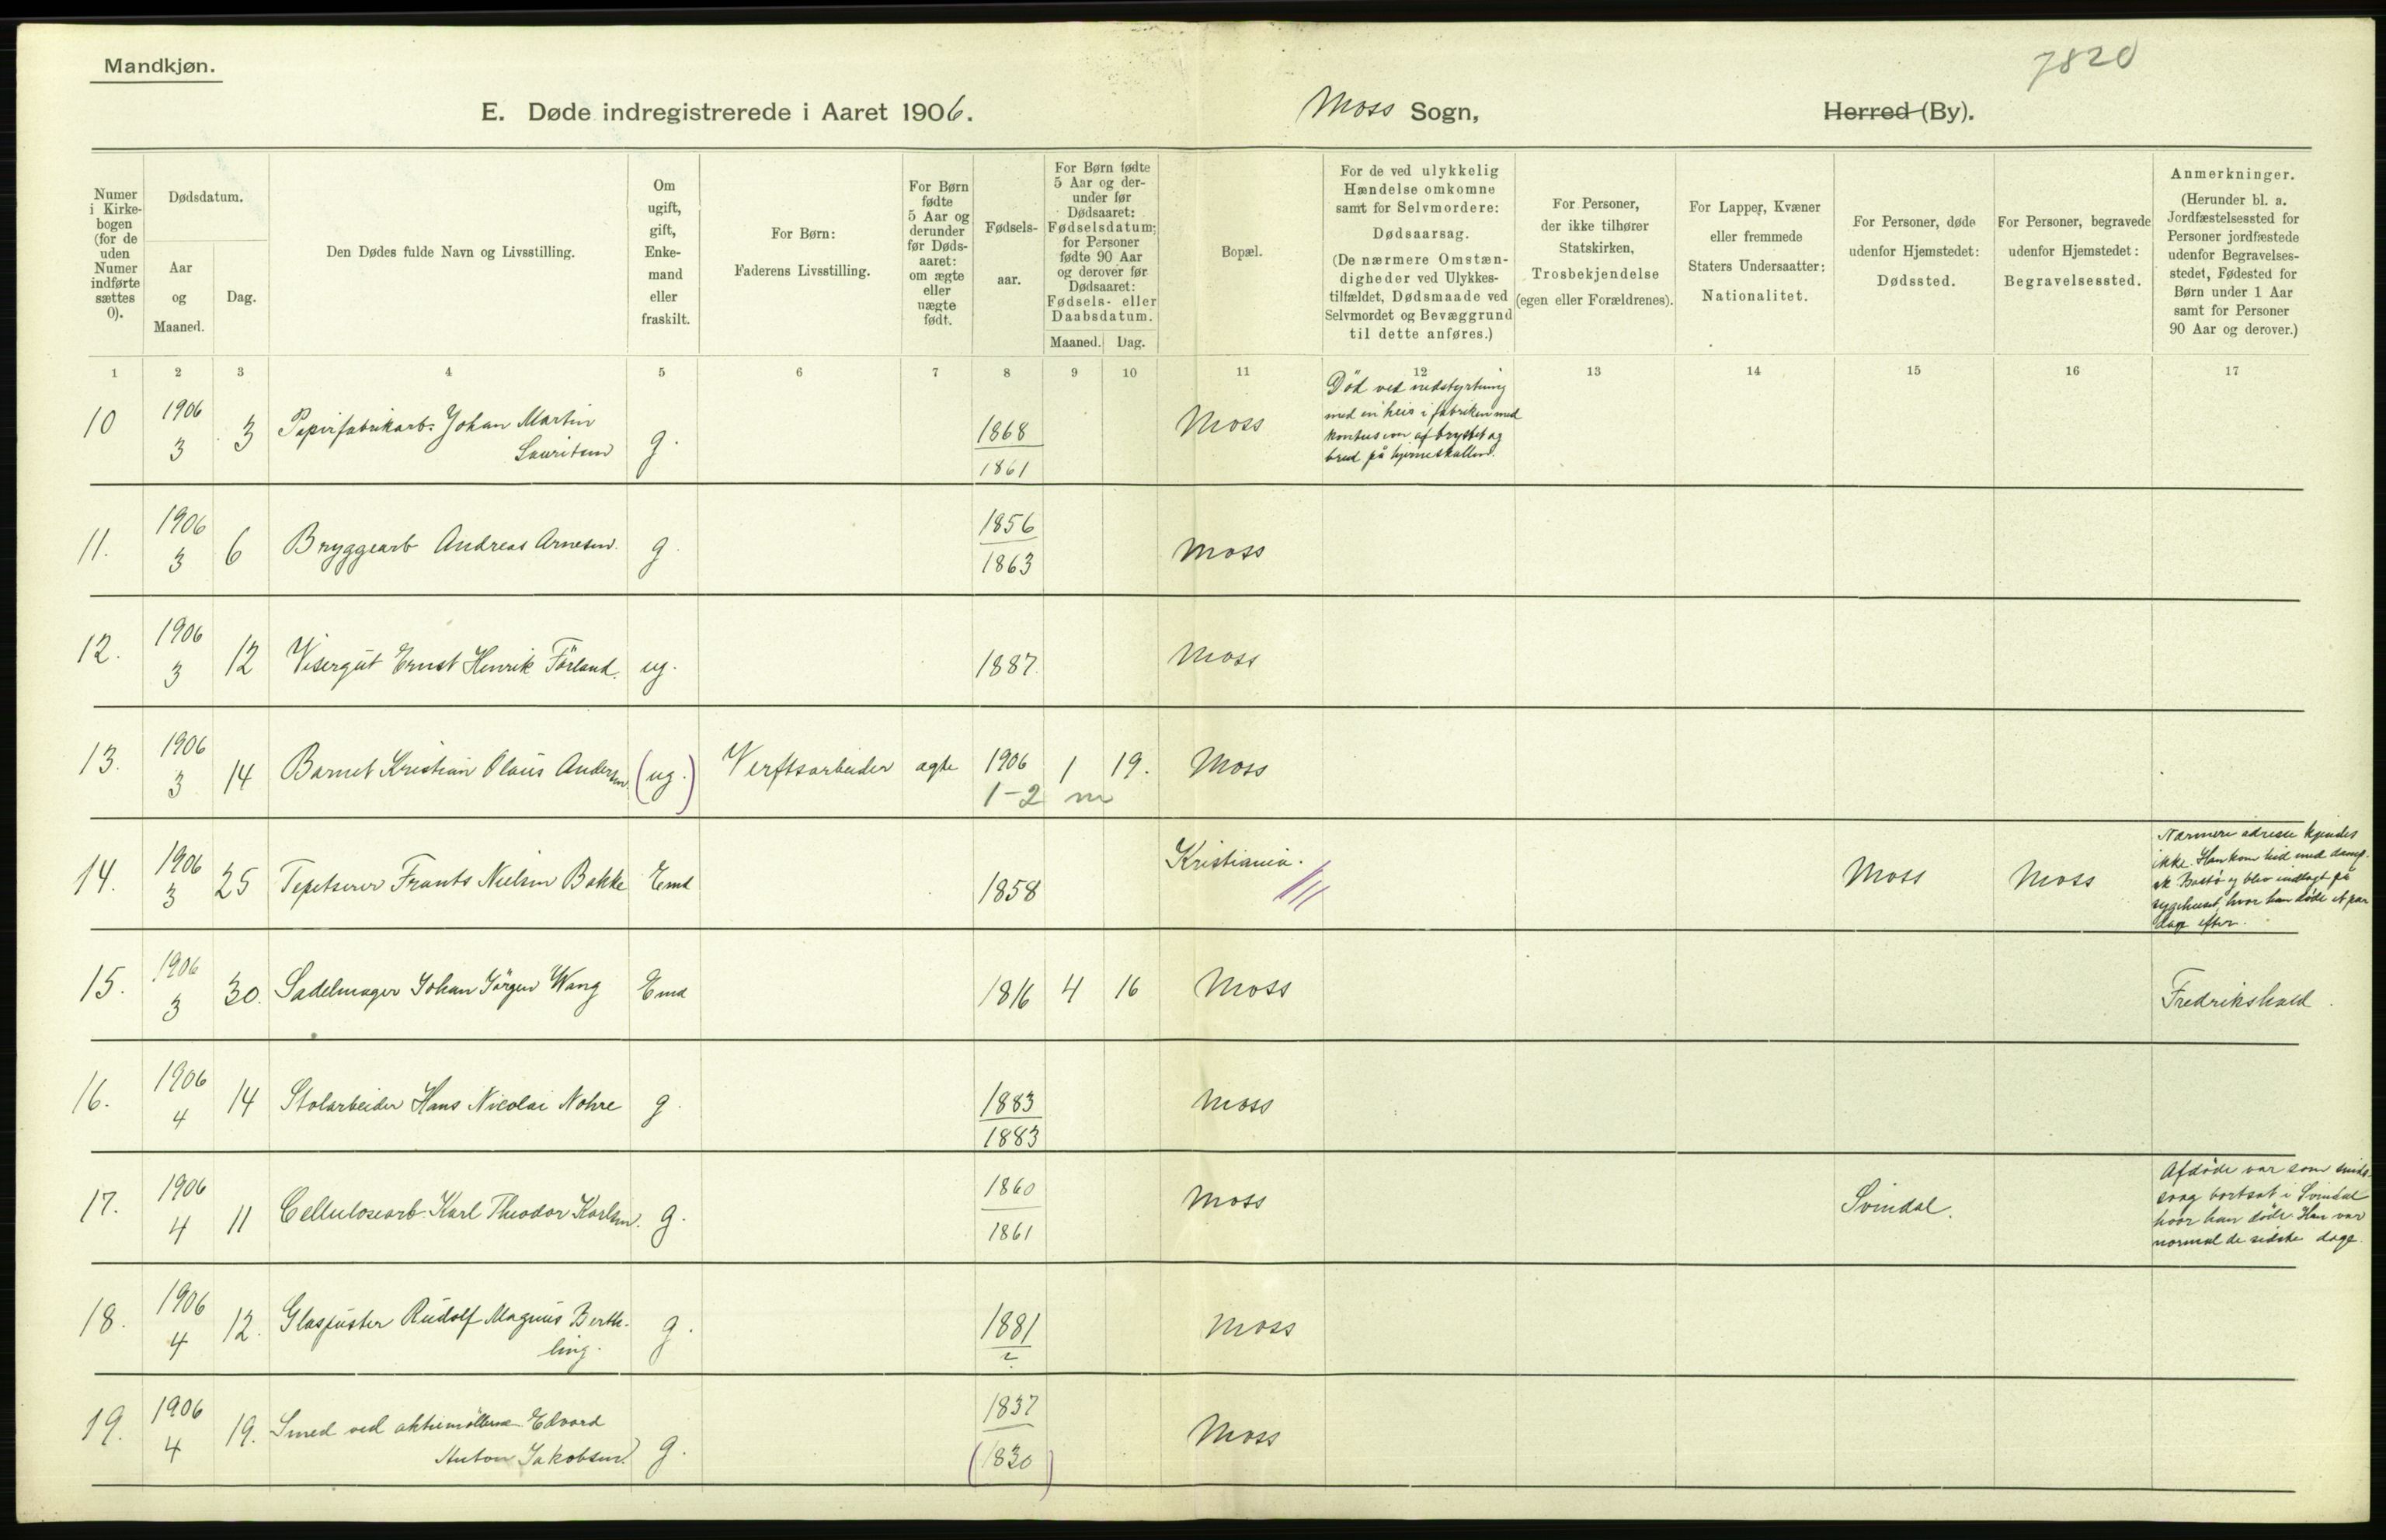 Mandkjøn.
7820
E. Døde indregistrerede i Aaret 1906.
Moss Sogn,
Herred (By).
Numer i Kirke-bogen (for de uden Numer indførte sættes 0).
Dødsdatum.
Aar og Maaned.
Dag.
Den Dødes fulde Navn og Livsstilling.
Om ugift, gift, Enke-mand eller fraskilt.
For Børn: Faderens Livsstilling.
For Børn fødte 5 Aar og derunder før Døds-aaret: om ægte eller uægte født.
Fødsels-aar.
For Børn fødte 5 Aar og der-under før Dødsaaret: Fødselsdatum; for Personer fødte 90 Aar og derover før Dødsaaret: Fødsels- eller Daabsdatum.
Maaned. Dag.
Bopæl.
For de ved ulykkelig Hændelse omkomne samt for Selvmordere: Dødsaarsag. (De nærmere Omstæn-digheder ved Ulykkes-tilfældet, Dødsmaade ved Selvmordet og Bevæggrund til dette anføres.)
For Personer, der ikke tilhører Statskirken, Trosbekjendelse (egen eller Forældrenes).
For Lapper, Kvæner eller fremmede Staters Undersaatter: Nationalitet.
For Personer, døde udenfor Hjemstedet: Dødssted.
For Personer, begravede udenfor Hjemstedet: Begravelsessted.
Anmerkninger. (Herunder bl. a. Jordfæstelsessted for Personer jordfæstede udenfor Begravelses-stedet, Fødested for Børn under 1 Aar samt for Personer 90 Aar og derover.)
1 2 3 4 5 6 7 8 9 10 11 12 13 14 15 16 17
10 1906 3 3 Papirfabrikarb. Johan Martin
Lauritsen g. 1868 1861 Moss
Død ved nedstyrtning
med en heis i fabriken med
kontusion af brystet og
brud på hjerneskallen.
11. 1906 3 6 Bryggearb Andreas Arnesen. g. 1856 1863 Moss
12. 1906 3 12 Visergut Ernst Henrik Förland. ug. 1887. Moss
13. 1906 3 14 Barnet Kristian Olaus Andersen (ug.) Verftsarbeider ægte 1906 1 19. Moss
1-2 m
14. 1906 3 25 Tapetserer Frants Nielsen Bakke Emd 1858 Kristiania. Moss Moss
Nærmere adresse kjendes
ikke. Han kom hid med damp-
sk Bastö og blev indlagt på
sygehuset, hvor han døde et par
dage efter.
15. 1906 3 30. Sadelmager Johan Jörgen Wang Emd 1816 4 16 Moss Fredrikshald.
16. 1906 4 14 Stolarbeider Hans Nicolai Nohre g. 1883 1883 Moss
17. 1906 4 11 Cellulosearb. Karl Theodor Karlsen. g. 1860 1861 Moss Svindal.
Afdöde var som sinds-
svag bortsat i Svindal
hvor han døde. Han var
normal de sidste dage.
18. 1906 4 12. Glaspuster Rudolf Magnus Berth-
ling. g. 1881 ? Moss
19. 1906 4 19. Smed ved aktiemöllerne Edvard
Anton Jakobsen. g. 1837 (1830) Moss